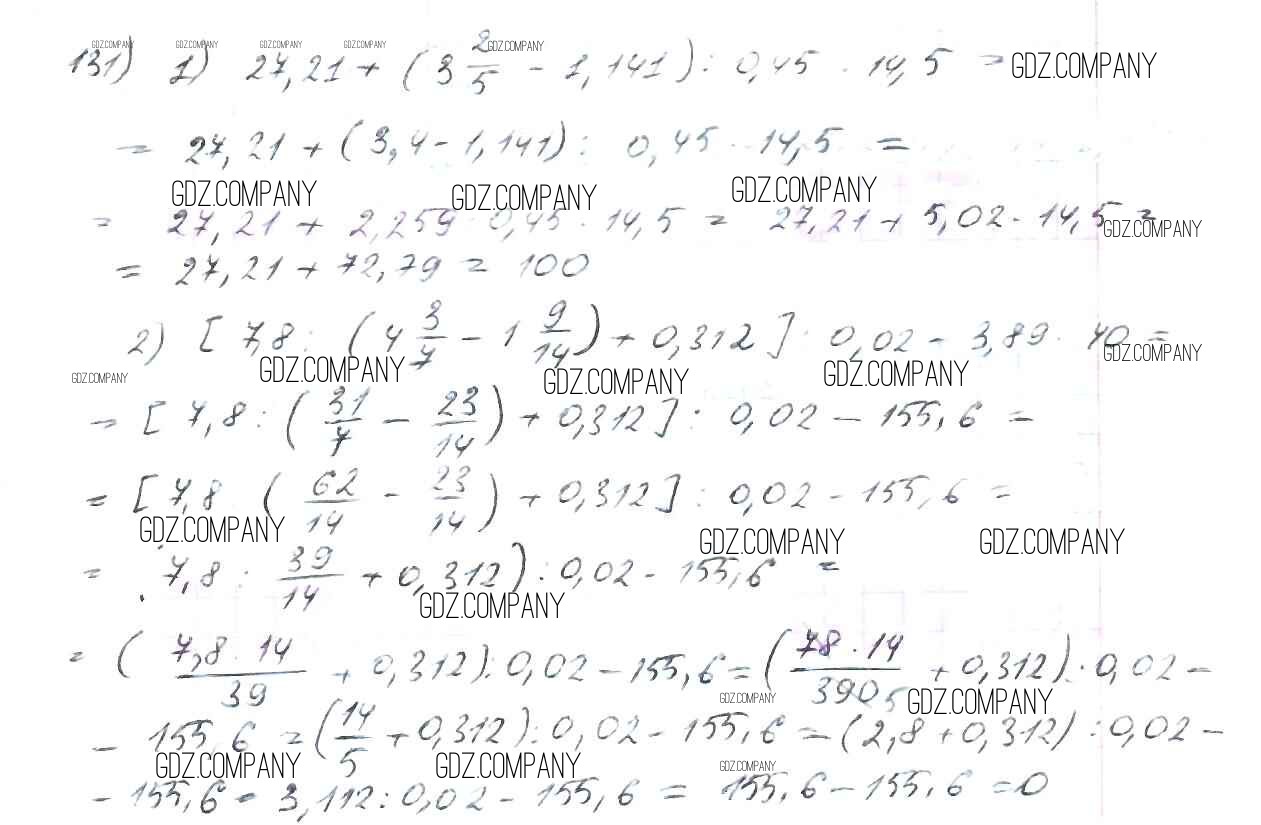 GDZ.COMPANY GDZ.COMPANY GDZ.COMPANY GDZ.COMPANY GDZ.COMPANY
131) 1) 27,21 + (3 2/5 - 1,141) : 0,45 · 14,5 = GDZ.COMPANY
= 27,21 + (3,4 - 1,141) : 0,45 · 14,5 =
GDZ.COMPANY GDZ.COMPANY GDZ.COMPANY
= 27,21 + 2,259 : 0,45 · 14,5 = 27,21 + 5,02 · 14,5 =
GDZ.COMPANY
= 27,21 + 72,79 = 100
2) [7,8 : (4 3/7 - 1 9/14) + 0,312] : 0,02 - 3,89 · 40 =
GDZ.COMPANY GDZ.COMPANY GDZ.COMPANY GDZ.COMPANY GDZ.COMPANY
= [7,8 : (31/7 - 23/14) + 0,312] : 0,02 - 155,6 =
= [7,8 (62/14 - 23/14) + 0,312] : 0,02 - 155,6 =
GDZ.COMPANY GDZ.COMPANY GDZ.COMPANY
= 7,8 : 39/14 + 0,312) : 0,02 - 155,6 =
GDZ.COMPANY
= (7,8 · 14/39 + 0,312) : 0,02 - 155,6 = (78 · 14/390 5 + 0,312) : 0,02 -
GDZ.COMPANY GDZ.COMPANY
- 155,6 = (14/5 + 0,312) : 0,02 - 155,6 = (2,8 + 0,312) : 0,02 -
GDZ.COMPANY GDZ.COMPANY GDZ.COMPANY
- 155,6 = 3,112 : 0,02 - 155,6 = 155,6 - 155,6 = 0